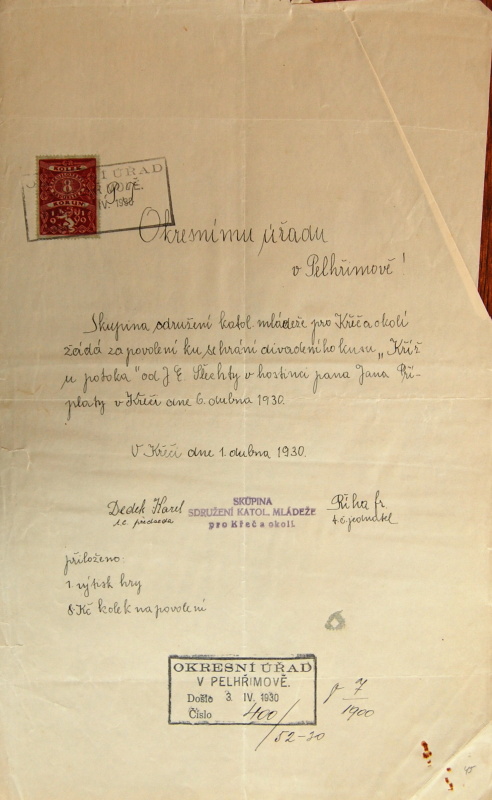 KOLEK
8
KORUN
OKRESNÍ ÚŘAD
IV. 1930
Okresnímu úřadu
v Pelhřimově!
Skupina sdružení katol. mládeže pro Křeč a okolí
žádá za povolení ku sehrání divadelního kusu „Kříž
u potoka" od J. E. Šlechty v hostinci pana Jana Při-
platy v Křeči dne 6. dubna 1930.
V Křeči dne 1. dubna 1930.
Dedek Karel
t.č. předseda
SKUPINA
SDRUŽENÍ KATOL. MLÁDEŽE
pro Křeč a okolí.
Říha fr.
t.č. jednatel
přiloženo:
1 výtisk hry
8 Kč kolek na povolení
OKRESNÍ ÚŘAD
V PELHŘIMOVĚ.
Došlo 3. IV. 1930
Číslo 400/
/52-30
7
1900